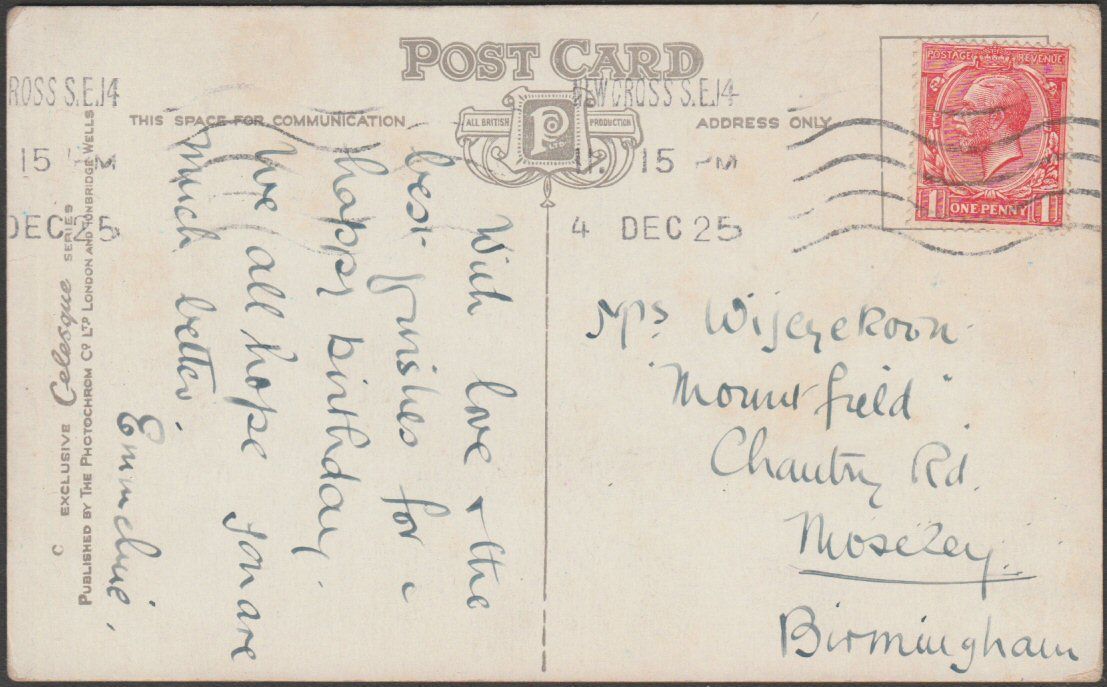 POST CARD
THIS SPACE FOR COMMUNICATION
ALL BRITISH
P
LTD
PRODUCTION
ADDRESS ONLY
ROSS S.E.14
15 PM
DEC 25
NEW CROSS S.E.14
11. 15 PM
4 DEC 25
POSTAGE REVENUE
1 ONE PENNY 1
With love & the
best wishes for a
happy birthday.
We all hope you are
much better.
Emmeline.
Mrs Wijeyekoon
"Mountfield"
Chantry Rd.
Moseley
Birmingham
C EXCLUSIVE Celesque SERIES
PUBLISHED BY THE PHOTOCHROM CO LTD LONDON AND TUNBRIDGE WELLS